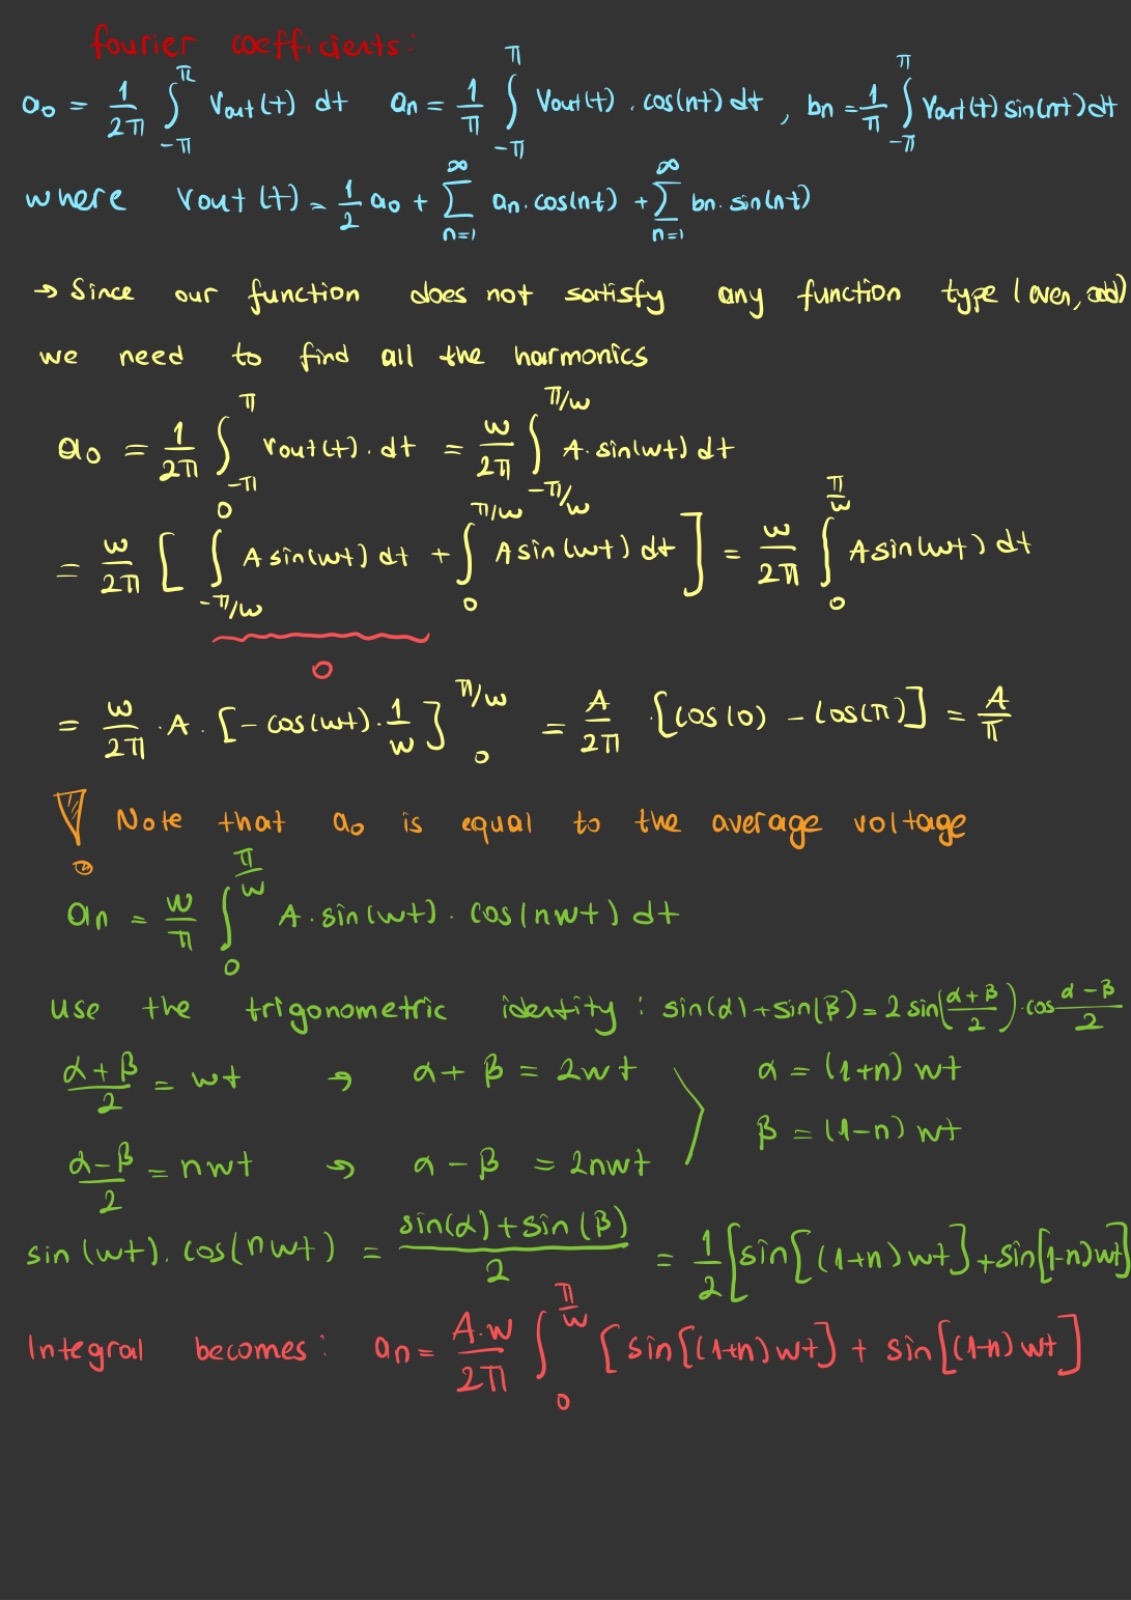 fourier coefficients:
a₀ = 1/2π ∫_{-π}^{π} Vout(t) dt   an = 1/π ∫_{-π}^{π} Vout(t) . cos(nt) dt , bn = 1/π ∫_{-π}^{π} Vout(t) sin(nt) dt
where Vout(t) = 1/2 a₀ + ∑_{n=1}^{∞} an . cos(nt) + ∑_{n=1}^{∞} bn . sin(nt)
→ Since our function does not satisfy any function type (even, odd)
we need to find all the harmonics
a₀ = 1/2π ∫_{-π}^{π} Vout(t) . dt = w/2π ∫_{-π/w}^{π/w} A . sin(wt) dt
= w/2π [ ∫_{-π/w}^{0} A sin(wt) dt + ∫_{0}^{π/w} A sin(wt) dt ] = w/2π ∫_{0}^{π/w} A sin(wt) dt
0
= w/2π . A . [- cos(wt) . 1/w]_{0}^{π/w} = A/2π . [cos(0) - cos(π)] = A/π
Note that a₀ is equal to the average voltage
an = w/π ∫_{0}^{π/w} A . sin(wt) . cos(nwt) dt
use the trigonometric identity : sin(α) + sin(β) = 2 sin((α+β)/2) . cos (α-β)/2
(α+β)/2 = wt → α + β = 2wt   α = (1+n) wt
β = (1-n) wt
(α-β)/2 = nwt → α - β = 2nwt
sin(wt) . cos(nwt) = (sin(α) + sin(β))/2 = 1/2 [sin[(1+n)wt] + sin[1-n)wt]
Integral becomes : an = A.w/2π ∫_{0}^{π/w} [sin[(1+n)wt] + sin[(1-n)wt]